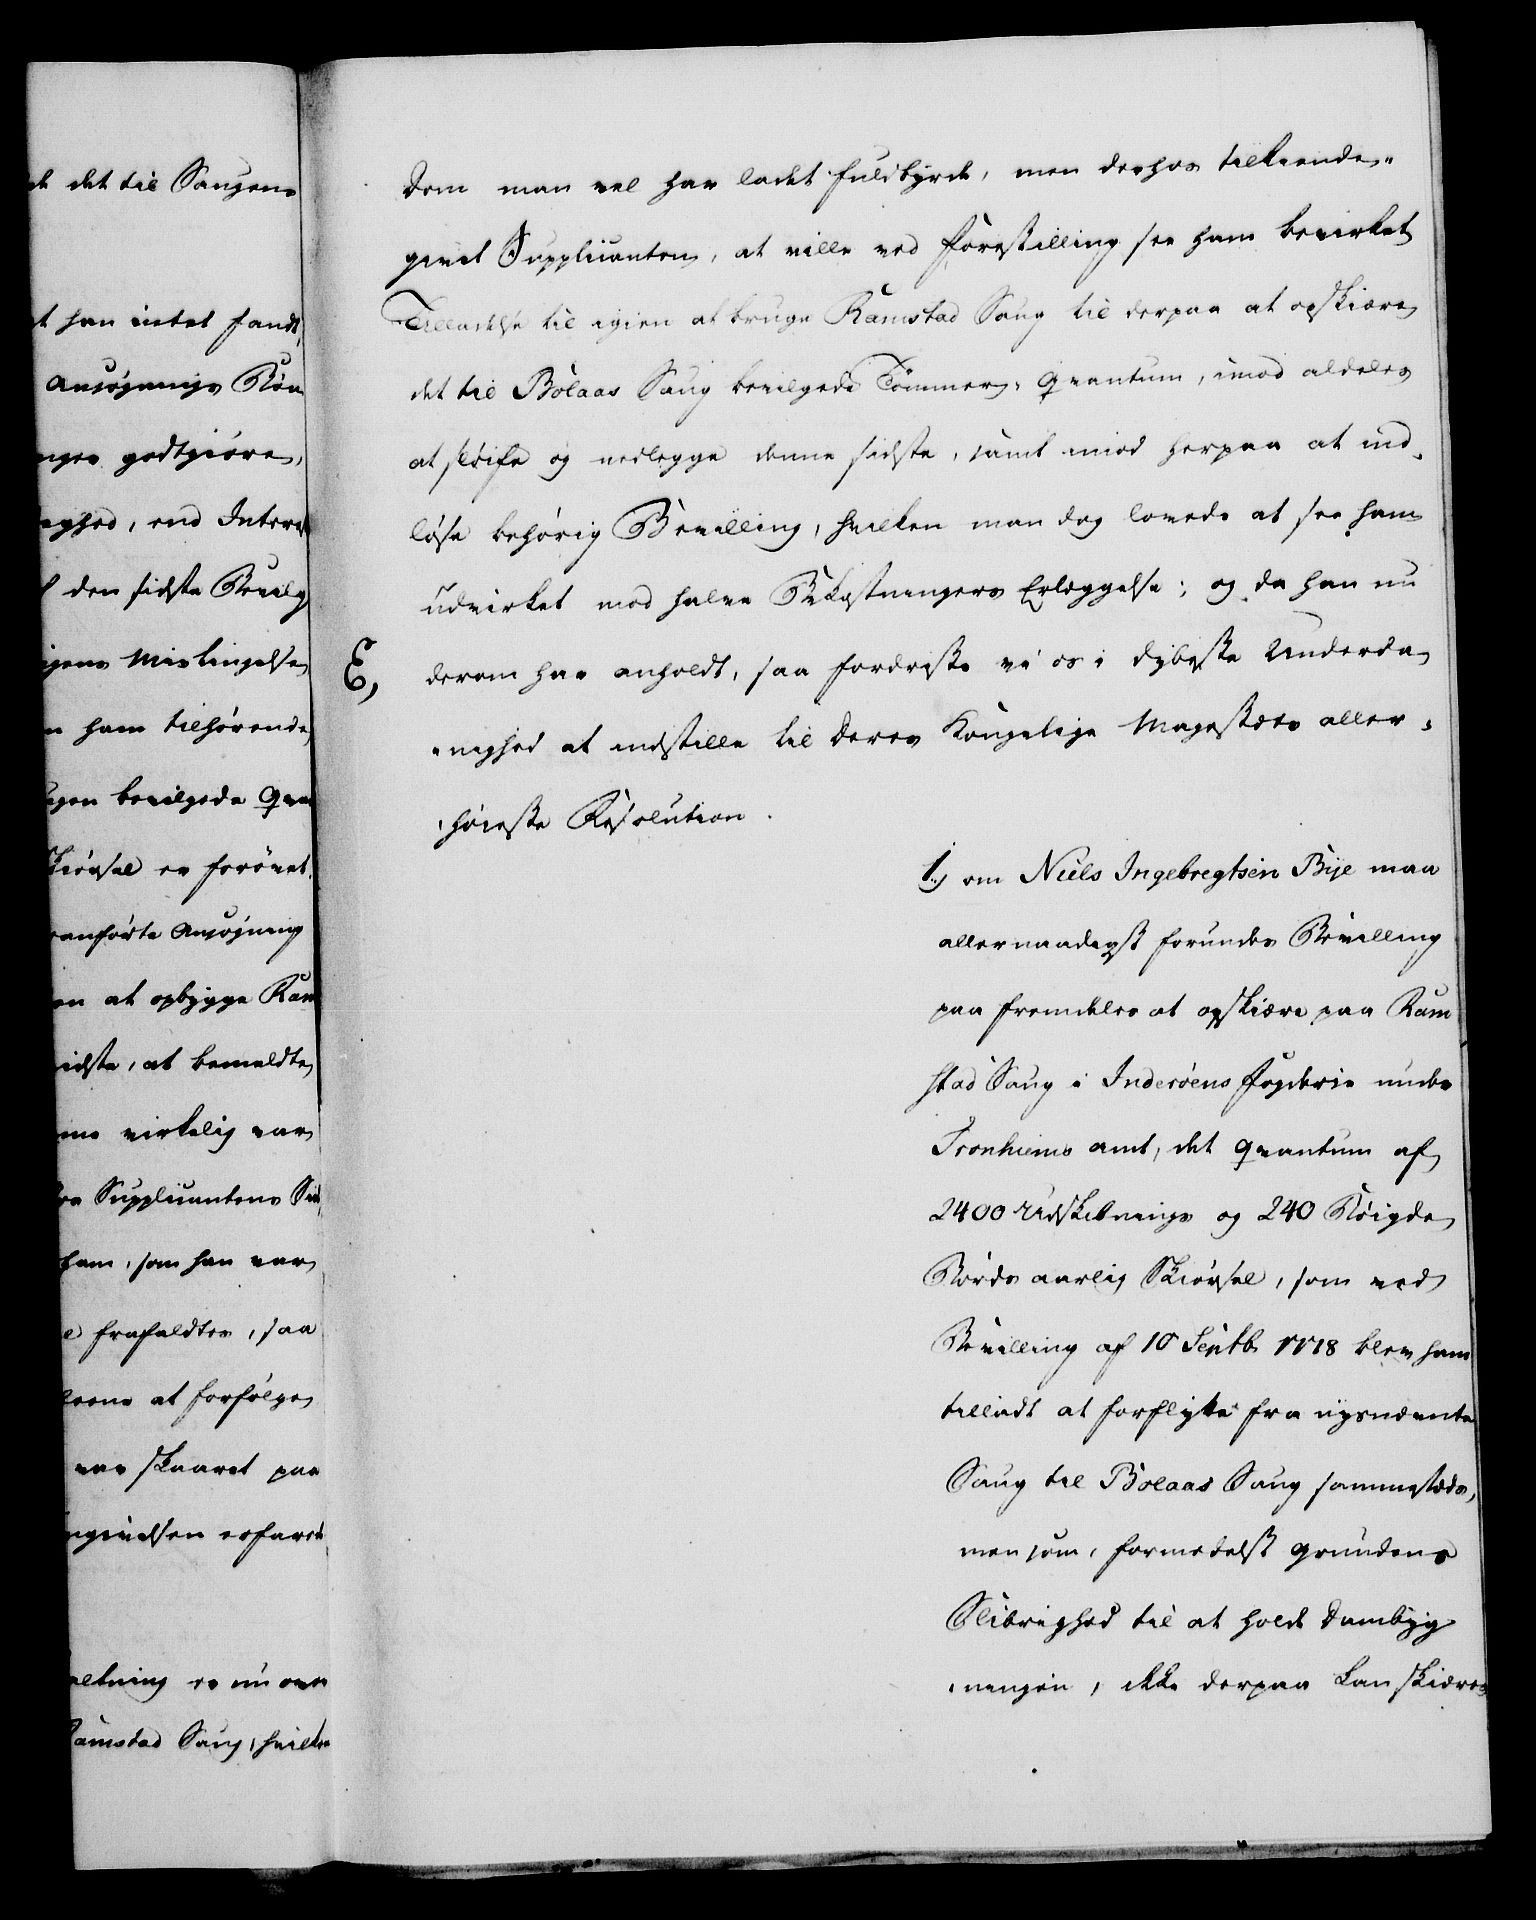 et det til Saugens
at han intet fandt,
Ansøgnings Bøn
nger godtgiøre,
eghed, end Interes
f den sidste Bevilg
igens Mislingelse
n ham tilhørende
ugen bevilgede Qva
Skiørsel er forøvet.
ranførte Ansøgning
en at opbygge Ram
idste, at bemeldte
me virkelig var
fra Supplicantens Sid
ham, som han var
e frafaldtes, saa
leene at forfølge
var skaaret paa
ngivelsen erfaret
retning er nu over
Ramstad Saug, hvilken
Dom man vel har ladet fuldbyrde, men derhos tilkiende-
givet Supplicanten, at ville ved Forestilling see ham bevirket
Tilladelse til igien at bruge Ramstad Saug til derpaa at opskiære
det til Bölaas Saug bevilgede Tømmer-Qvantum, imod aldeles
at sløife og nedlegge denne sidste, samt imod herpaa at ind-
løse behørig Bevilling, hvilken man dog lovede at see ham
udvirket mod halve Bekostningers Erlæggelse; og da han nu
E, derom har anholdt, saa fordriste vi os i dybeste Underda-
-nighed at indstille til Deres Kongelige Majestæts aller-
-høieste Resolution.
1.) om Niels Ingebregtsen Bye maa
allernaadigst forundes Bevilling
paa fremdeles at opskiære paa Ram
stad Saug i Inderøens Fogderie under
Tronhiems Amt, det Qvantum af
2400 Udskibnings og 240 Bøigde
Bords aarlig Skiørsel, som ved
Bevilling af 10 Septb. 1778 blev ham
tilladt at forflytte fra nysnævnte
Saug til Bölaas Saug sammesteds,
men som, formedelst Grundens
Slibrighed til at holde Dambyg
-ningen, ikke derpaa kan skiæres